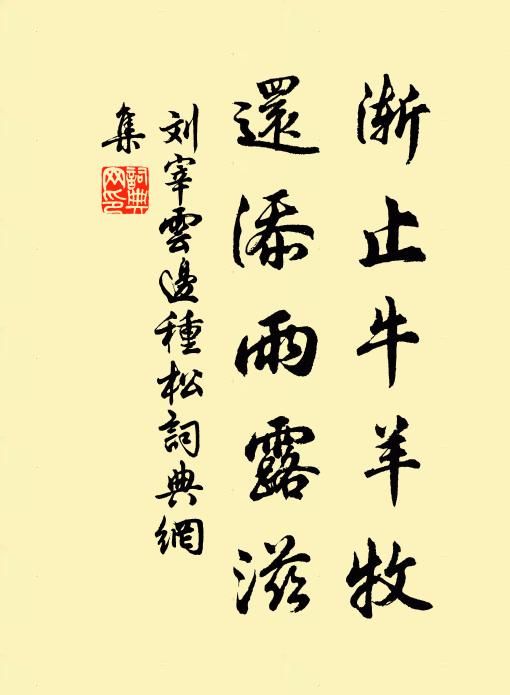 渐止牛羊牧
還添雨露滋
刘宰雲邊種松詞典網
集
詞典網印